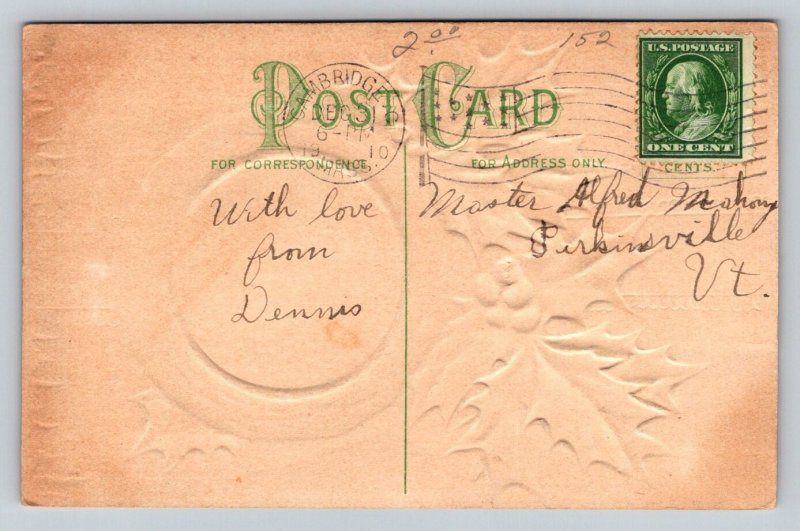 2.00
152
U.S. POSTAGE
ONE CENT
CAMBRIDGE
DEC
6-PM
1910
MASS.
POST CARD
FOR CORRESPONDENCE
FOR ADDRESS ONLY.
CENTS.
With love
from
Dennis
Master Alfred Mahony
Perkinsville
Vt.